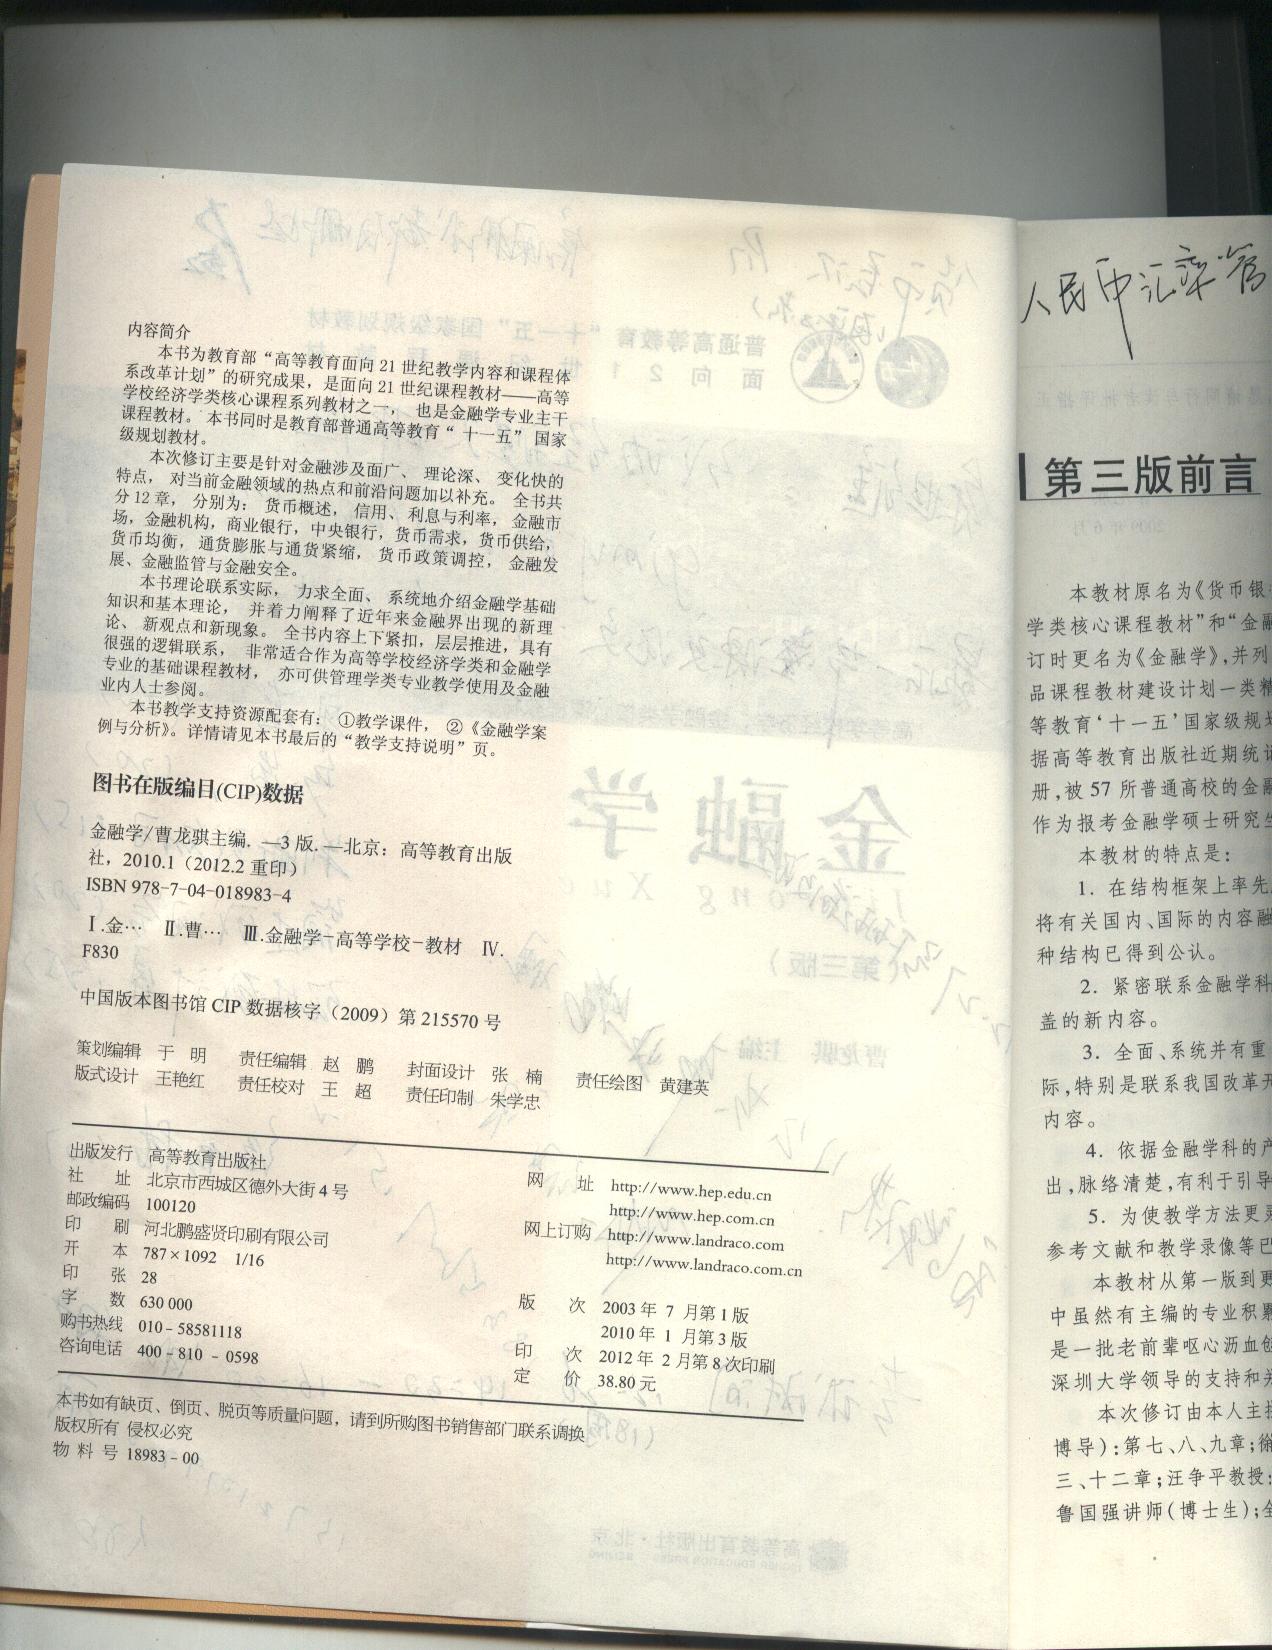 内容简介
本书为教育部“高等教育面向21世纪教学内容和课程体
系改革计划”的研究成果，是面向21世纪课程教材——高等
学校经济学类核心课程系列教材之一， 也是金融学专业主干
课程教材。本书同时是教育部普通高等教育“ 十一五” 国家
级规划教材。
本次修订主要是针对金融涉及面广、 理论深、 变化快的
特点， 对当前金融领域的热点和前沿问题加以补充。 全书共
分12章， 分别为： 货币概述， 信用、利息与利率， 金融市
场，金融机构，商业银行，中央银行，货币需求，货币供给，
货币均衡， 通货膨胀与通货紧缩， 货币政策调控， 金融发
展、金融监管与金融安全。
本书理论联系实际， 力求全面、 系统地介绍金融学基础
知识和基本理论， 并着力阐释了近年来金融界出现的新理
论、 新观点和新现象。 全书内容上下紧扣，层层推进，具有
很强的逻辑联系， 非常适合作为高等学校经济学类和金融学
专业的基础课程教材， 亦可供管理学类专业教学使用及金融
业内人士参阅。
本书教学支持资源配套有： ①教学课件， ②《金融学案
例与分析》。详情请见本书最后的“教学支持说明”页。
图书在版编目(CIP)数据
金融学/曹龙骐主编. —3版. —北京：高等教育出版
社，2010.1（2012.2重印）
ISBN 978-7-04-018983-4
Ⅰ.金… Ⅱ.曹… Ⅲ.金融学-高等学校-教材 Ⅳ.
F830
中国版本图书馆CIP数据核字（2009）第215570号
策划编辑 于 明 责任编辑 赵 鹏 封面设计 张 楠 责任绘图 黄建英
版式设计 王艳红 责任校对 王 超 责任印制 朱学忠
出版发行 高等教育出版社
社 址 北京市西城区德外大街4号
邮政编码 100120
印 刷 河北鹏盛贤印刷有限公司
开 本 787×1092 1/16
印 张 28
字 数 630 000
购书热线 010-58581118
咨询电话 400-810-0598
网 址 http://www.hep.edu.cn
http://www.hep.com.cn
网上订购 http://www.landraco.com
http://www.landraco.com.cn
版 次 2003年 7 月第1版
2010年 1 月第3版
印 次 2012年 2 月第8次印刷
定 价 38.80元
本书如有缺页、倒页、脱页等质量问题，请到所购图书销售部门联系调换
版权所有 侵权必究
物 料 号 18983-00
人民币汇率管
第三版前言
本教材原名为《货币银
学类核心课程教材”和“金融
订时更名为《金融学》,并列
品课程教材建设计划一类精
等教育‘十一五’国家级规划
据高等教育出版社近期统计
册,被57所普通高校的金融
作为报考金融学硕士研究生
本教材的特点是：
1. 在结构框架上率先
将有关国内、国际的内容融
种结构已得到公认。
2. 紧密联系金融学科
盖的新内容。
3. 全面、系统并有重
际,特别是联系我国改革开
内容。
4. 依据金融学科的产
出,脉络清楚,有利于引导
5. 为使教学方法更灵
参考文献和教学录像等已
本教材从第一版到更
中虽然有主编的专业积累
是一批老前辈呕心沥血创
深圳大学领导的支持和关
本次修订由本人主持
博导):第七、八、九章;徐
三、十二章;汪争平教授:
鲁国强讲师(博士生);全